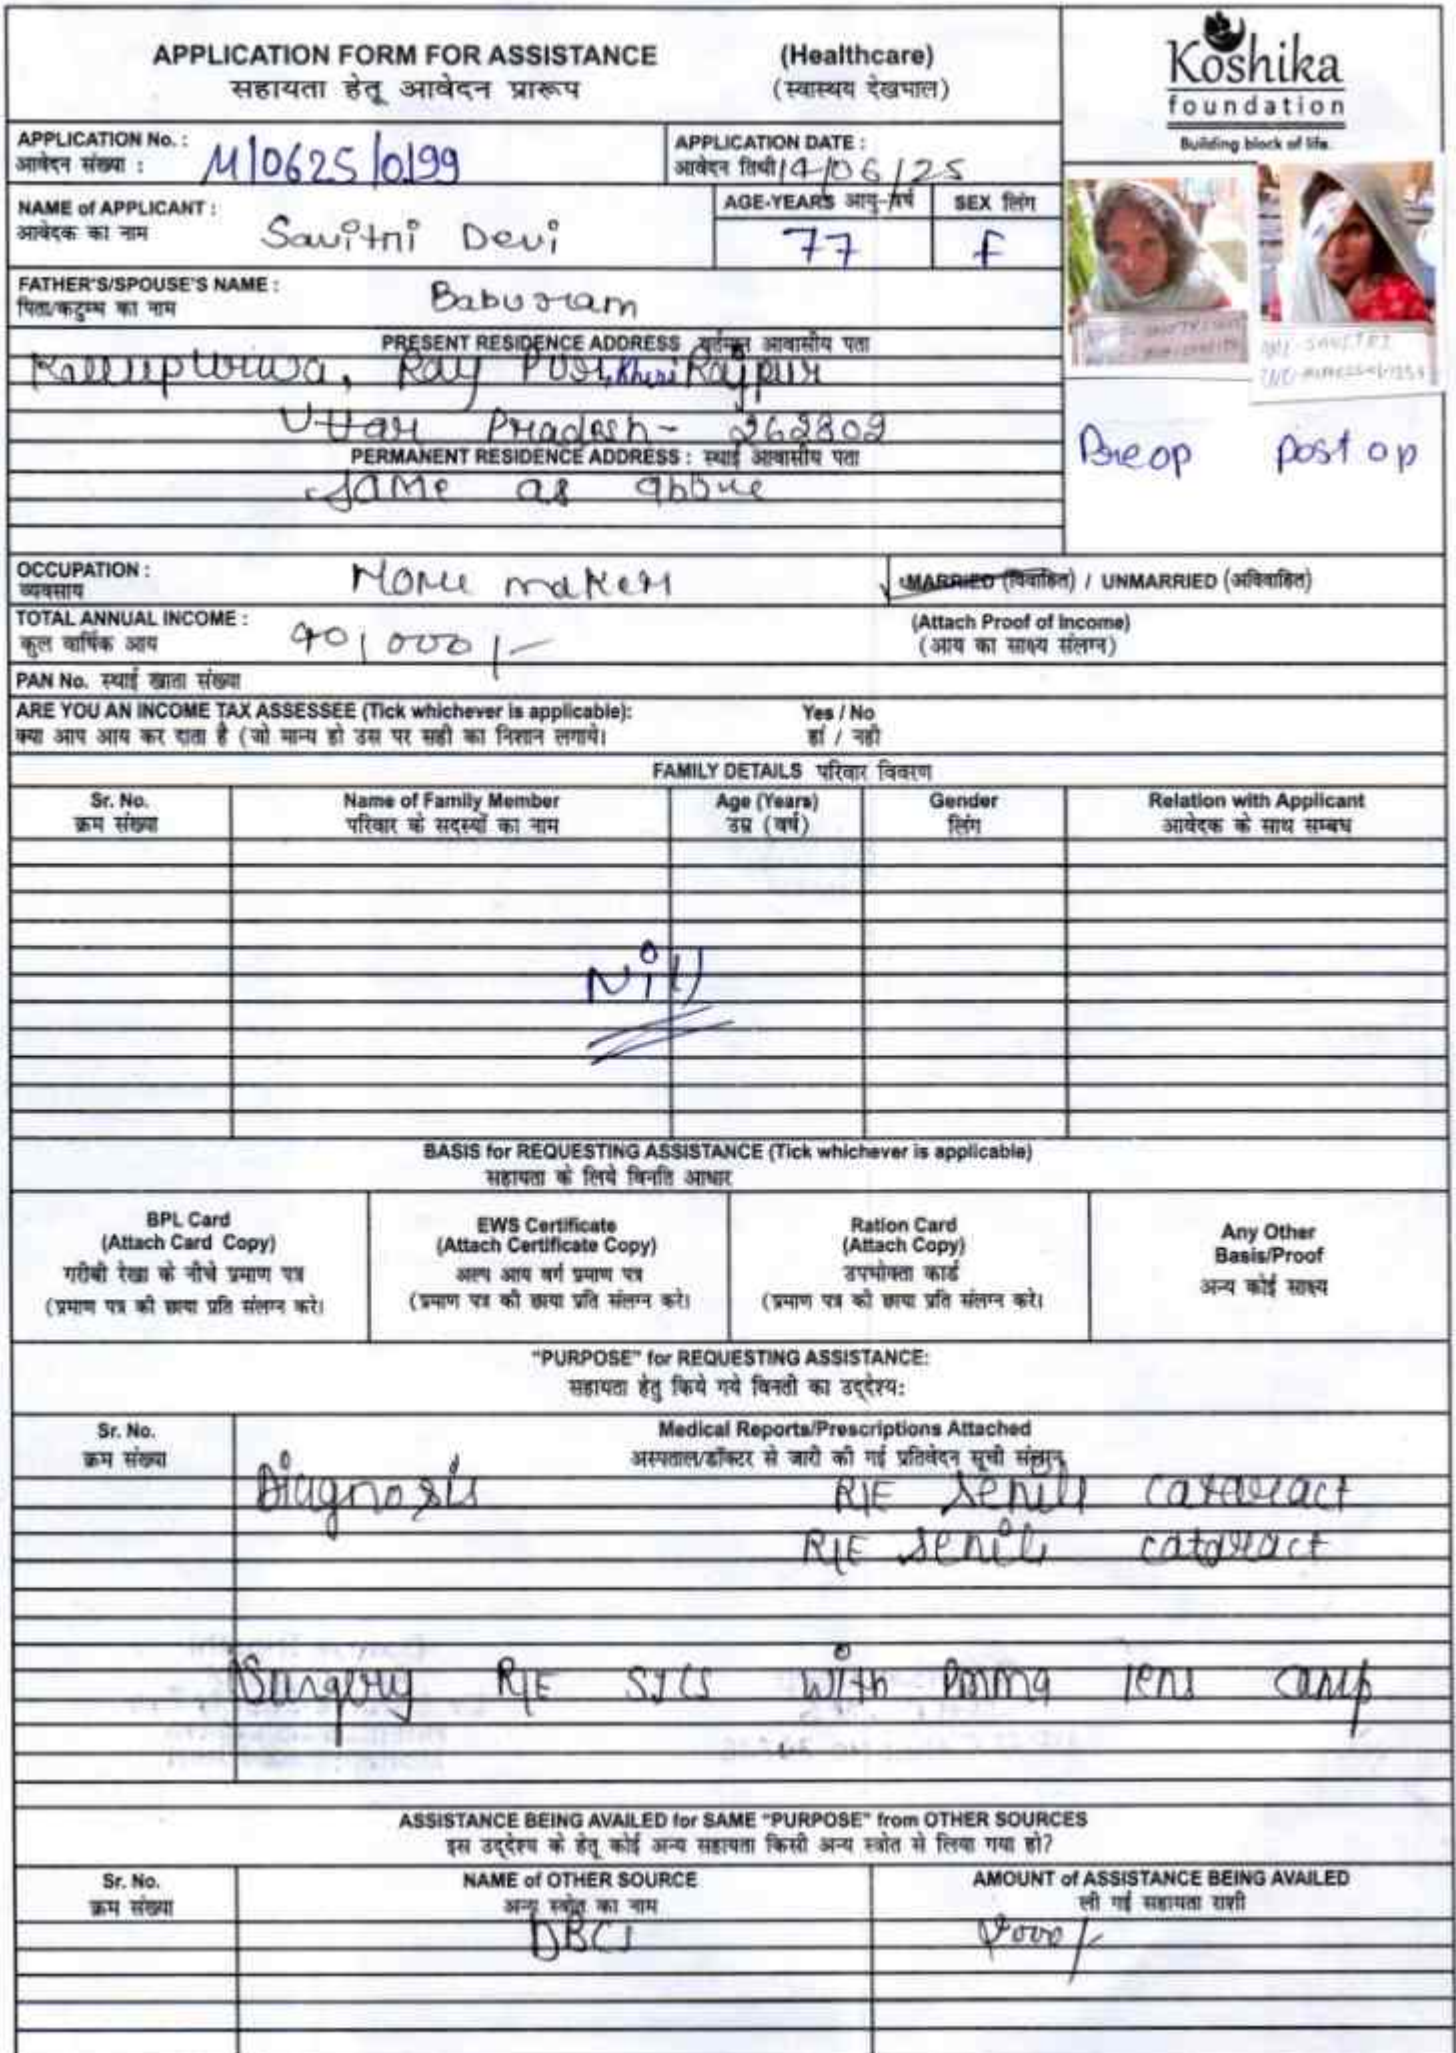 APPLICATION FORM FOR ASSISTANCE (Healthcare)
सहायता हेतू आवेदन प्रारूप (स्वास्थय देखभाल)
Koshika
foundation
Building block of life.
APPLICATION No. :
आवेदन संख्या : M/0625/0199
APPLICATION DATE :
आवेदन तिथी 14/06/25
NAME of APPLICANT :
आवेदक का नाम Savitri Devi
AGE-YEARS आयु-वर्ष 77
SEX लिंग F
FATHER'S/SPOUSE'S NAME :
पिता/कटुम्ब का नाम Baburam
PRESENT RESIDENCE ADDRESS वर्तमान आवासीय पता
Ray Puri, Kheri Rajpur
Uttar Pradesh - 262802
PERMANENT RESIDENCE ADDRESS : स्थाई आवासीय पता
Same as above
Preop post op
OCCUPATION :
व्यवसाय Home maker
MARRIED (विवाहित) / UNMARRIED (अविवाहित)
TOTAL ANNUAL INCOME :
कुल वार्षिक आय 90,000/-
(Attach Proof of Income)
(आय का साक्ष्य संलग्न)
PAN No. स्थाई खाता संख्या
ARE YOU AN INCOME TAX ASSESSEE (Tick whichever is applicable): Yes / No
क्या आप आय कर दाता है (जो मान्य हो उस पर सही का निशान लगाये। हां / नही
FAMILY DETAILS परिवार विवरण
Sr. No. Name of Family Member Age (Years) Gender Relation with Applicant
क्रम संख्या परिवार के सदस्यों का नाम उम्र (वर्ष) लिंग आवेदक के साथ सम्बध
Nill
BASIS for REQUESTING ASSISTANCE (Tick whichever is applicable)
सहायता के लिये विनति आधार
BPL Card
(Attach Card Copy)
गरीबी रेखा के नीचे प्रमाण पत्र
(प्रमाण पत्र की छाया प्रति संलग्न करे।
EWS Certificate
(Attach Certificate Copy)
अल्प आय वर्ग प्रमाण पत्र
(प्रमाण पत्र की छाया प्रति संलग्न करे।
Ration Card
(Attach Copy)
उपभोक्ता कार्ड
(प्रमाण पत्र की छाया प्रति संलग्न करे।
Any Other
Basis/Proof
अन्य कोई साक्ष्य
"PURPOSE" for REQUESTING ASSISTANCE:
सहायता हेतु किये गये विनती का उद्देश्य:
Sr. No. Medical Reports/Prescriptions Attached
क्रम संख्या अस्पताल/डॉक्टर से जारी की गई प्रतिवेदन सूची संलग्न
Diagnosis R/E Senile cataract
R/E senile cataract
Surgery R/E SICS with PMMA lens camp
ASSISTANCE BEING AVAILED for SAME "PURPOSE" from OTHER SOURCES
इस उद्देश्य के हेतू कोई अन्य सहायता किसी अन्य स्त्रोत से लिया गया हो?
Sr. No. NAME of OTHER SOURCE AMOUNT of ASSISTANCE BEING AVAILED
क्रम संख्या अन्य स्त्रोत का नाम ली गई सहायता राशी
DBCS